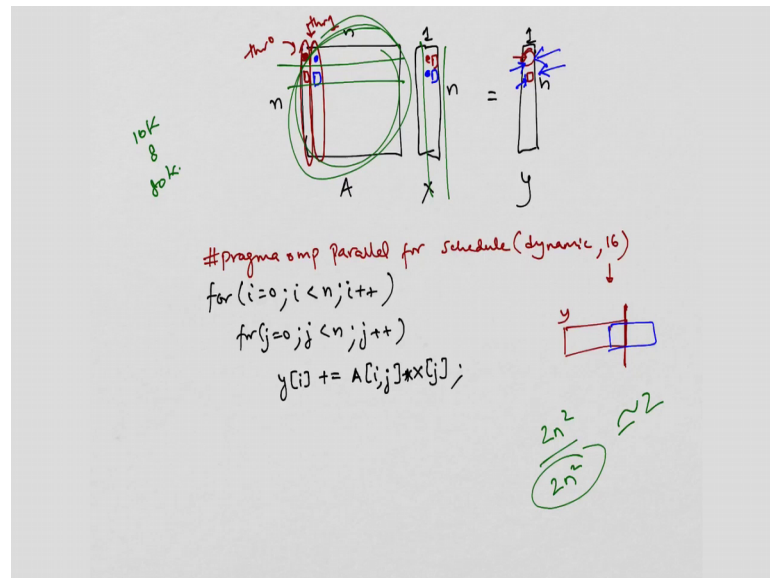 thr0
thr1
n
1
1
n
n
=
n
A
X
y
10K
8
80K.
#pragma omp parallel for schedule(dynamic,16)
for(i=0;i<n;i++)
for(j=0;j<n;j++)
y[i] += A[i,j]*X[j];
y
2n²
2n²
≃2